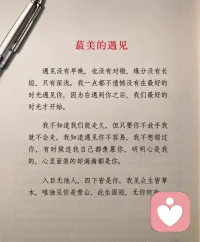 最美的遇见
遇见没有早晚，也没有对错，缘分没有长
短，只有深浅。我一点都不遗憾没有在最好的
时光遇见你，因为在遇到你之后，我们最好的
时光才开始。
我不知道我们能走久，但只要你不放手我
就不会走，我知道遇见你不容易，我不想错过
你，有时候连我自己都羡慕你，明明心是我
的，心里面装的却满满都是你。
入目无他人，四下皆是你，我见众生皆草
木，唯独见你是青山，此生固短，无你何欢